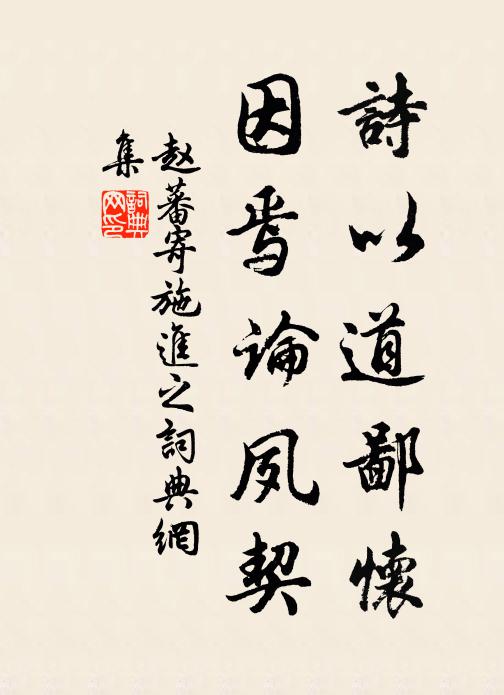 詩以道鄙懷
因焉論夙契
赵蕃寄施進之詞典網
集
詞典
网印